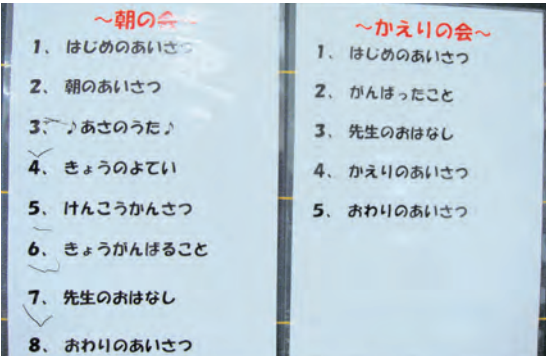 ～朝の会～
1、はじめのあいさつ
2、朝のあいさつ
3、♪あさのうた♪
4、きょうのよてい
5、けんこうかんさつ
6、きょうがんばること
7、先生のおはなし
8、おわりのあいさつ
～かえりの会～
1、はじめのあいさつ
2、がんばったこと
3、先生のおはなし
4、かえりのあいさつ
5、おわりのあいさつ